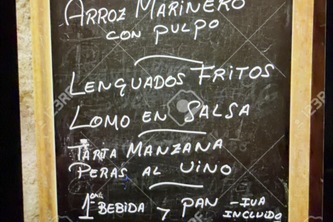 ARROZ MARINERO
CON PULPO
LENGUADOS FRITOS
LOMO EN SALSA
TARTA MANZANA
PERAS AL VINO
1ª BEBIDA Y PAN - IVA
INCLUIDO